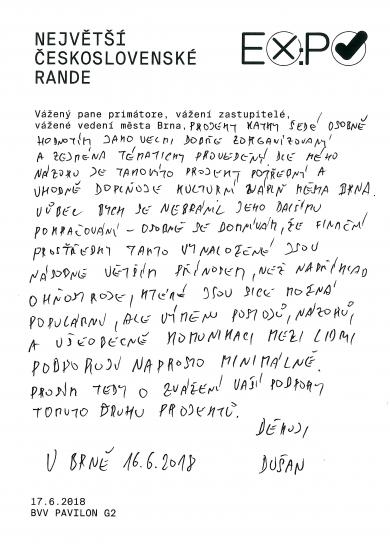 NEJVĚTŠÍ
ČESKOSLOVENSKÉ
RANDE
EX:PO
Vážený pane primátore, vážení zastupitelé,
vážené vedení města Brna, PROJEKT KATKY ŠEDÉ OSOBNĚ
HODNOTÍM JAKO VELMI DOBŘE ZORGANIZOVANÝ
A ZEJMÉNA TÉMATICKY PROVEDENÝ. DLE MÉHO
NÁZORU JE TAKOVÝTO PROJEKT POTŘEBNÝ A
VHODNĚ DOPLŇUJE KULTURNÍ NÁPLŇ MĚSTA BRNA.
VŮBEC BYCH SE NEBRÁNIL JEHO DALŠÍMU
POKRAČOVÁNÍ – OSOBNĚ SE DOMNÍVÁM, ŽE FINANČNÍ
PROSTŘEDKY TAKTO VYNALOŽENÉ JSOU
NÁSOBNĚ VĚTŠÍM PŘÍNOSEM, NEŽ NAPŘÍKLAD
OHŇOSTROJE, KTERÉ JSOU SICE MOŽNÁ
POPULÁRNÍ, ALE VÝMĚNU POSTOJŮ, NÁZORŮ,
A VŠEOBECNĚ KOMUNIKACI MEZI LIDMI
PODPORUJÍ NAPROSTO MINIMÁLNĚ.
PROSÍM TEDY O ZVÁŽENÍ VAŠÍ PODPORY
TOMUTO DRUHU PROJEKTŮ.
DĚKUJI
V BRNĚ 16.6.2018 DUŠAN
17.6.2018
BVV PAVILON G2